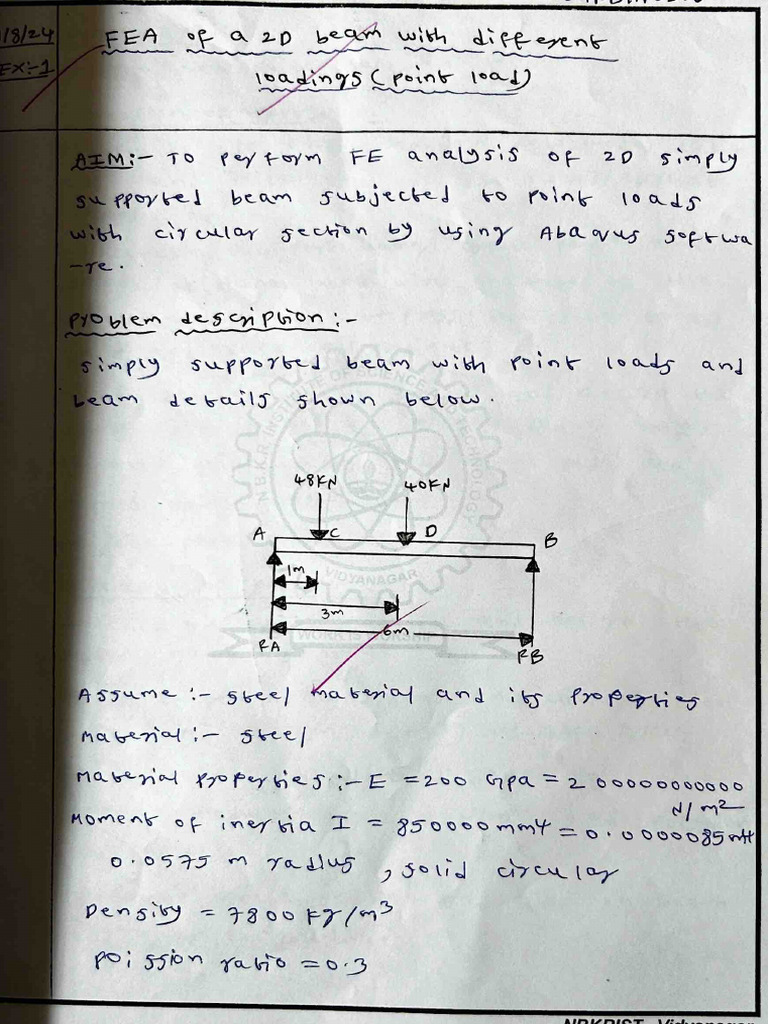 1/8/24
EX:-1
FEA of a 2D beam with different
loadings (point load)
AIM:- To perform FE analysis of 2D simply
supported beam subjected to point loads
with circular section by using Abaqus softwa
-re.
Problem description:-
simply supported beam with point loads and
beam details shown below.
N.B.K.R. INSTITUTE OF SCIENCE AND TECHNOLOGY
48KN 40KN
A C D B
1m
VIDYANAGAR
3m
6m
WORK IS WORSHIP
RA RB
Assume:- steel material and its properties
Material:- steel
Material properties:- E = 200 Gpa = 200000000000
N/m2
Moment of inertia I = 850000mm4 = 0.0000085m4
0.0575 m radius, solid circular
Density = 7800 kg/m3
poission ratio = 0.3
NBKRIST, Vidyanagar